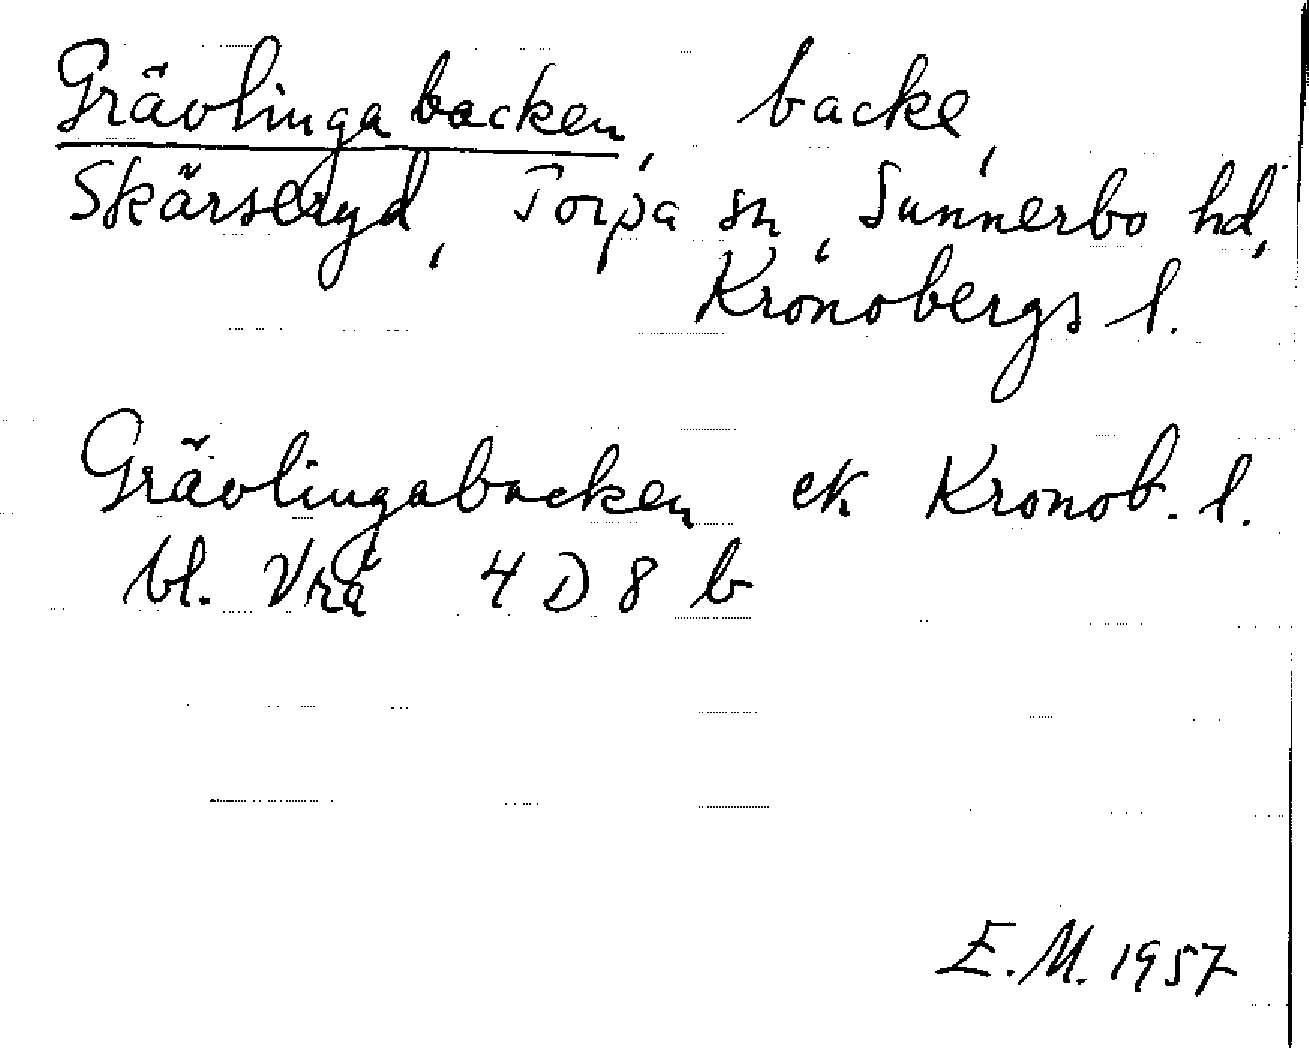 Grävlingabacken, backe,
Skärseryd, Torpa sn, Sunnerbo hd,
Kronobergs l.
Grävlingabacken ek Kronob. l.
bl. Vrå 4 D 8 b
E.M. 1957